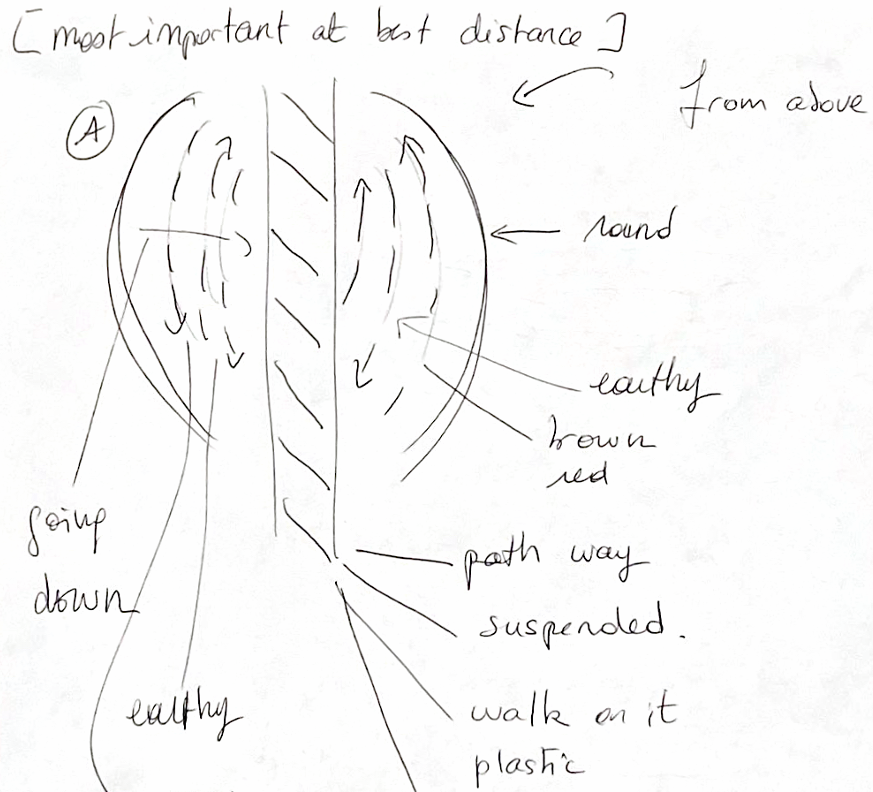 [most important at best distance]
from above
A
round
earthy
brown
red
going
down
path way
suspended.
earthy
walk on it
plastic